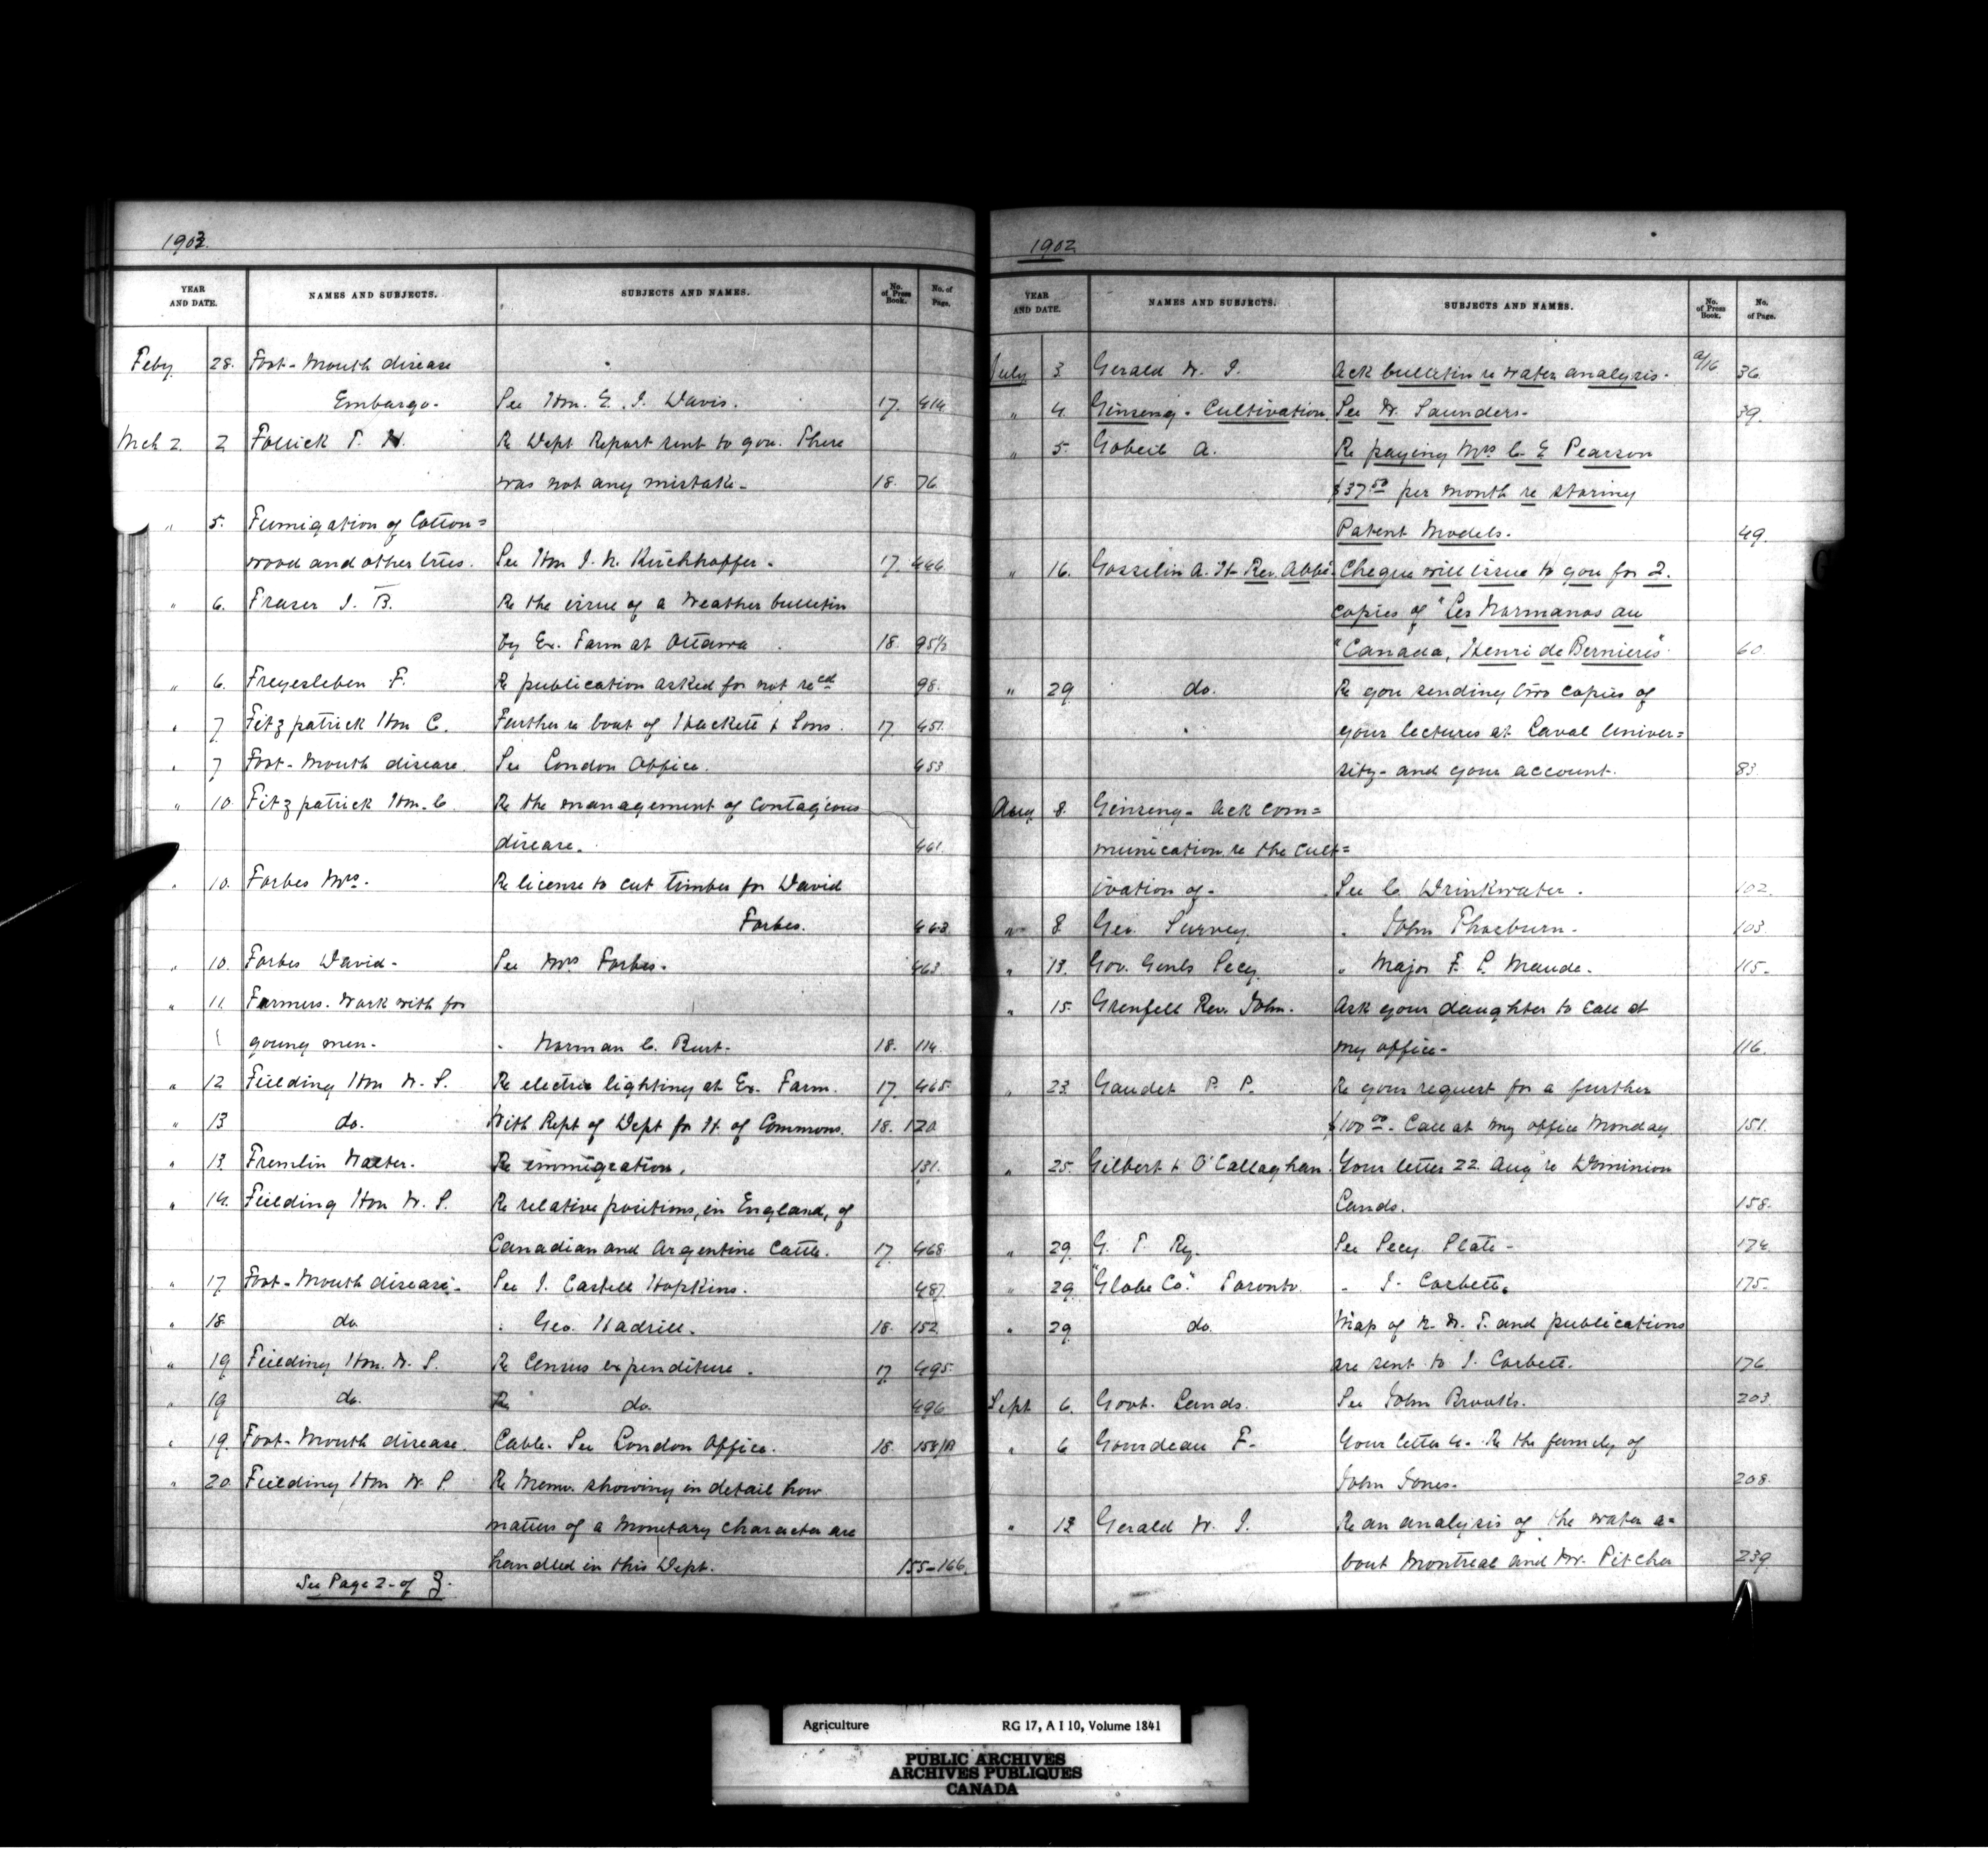 1903.
YEAR AND DATE. NAMES AND SUBJECTS. SUBJECTS AND NAMES. No. of Press Book. No. of Page.
Feby 28. Foot-Mouth disease
Embargo- See Hon. E. J. Davis. 17. 414
Mch 2. 2 T. H. Re Dept Report sent to you. There
was not any mistake- 18. 76
" 5. Fumigation of Cotton=
wood and other trees. See Hon J. N. Kirchhoffer. 17. 446
" 6. Fraser J. B. Re the issue of a weather bulletin
by Ex. Farm at Ottawa 18. 95½
" 6. Freyesleben F. Re publication asked for not recd 98.
" 7 Fitzpatrick Hon C. Further re boat of Hackett & Sons. 17. 451.
" 7 Foot-Mouth disease. See London Office. 453
" 10. Fitzpatrick Hon. C. Re the management of contagious
disease. 461.
" 10. Forbes Mrs. Re license to cut timber for David
Forbes. 463.
" 10. Forbes David- See Mrs Forbes. 463.
" 11. Farmers. Work with for
young men- " Norman C. Burt- 18. 114.
" 12 Fielding Hon W. S. Re electric lighting at Ex. Farm. 17. 465
" 13 do. With Rept of Dept for H. of Commons. 18. 120
" 13 Fremlin Walter. Re immigration. 131.
" 14. Fielding Hon W. S. Re relative positions, in England, of
Canadian and Argentine Cattle. 17. 468
" 17 Foot-Mouth disease- See J. Castell Hopkins. 487.
" 18. do " Geo. Hadrill. 18. 152
" 19 Fielding Hon. W. S. Re Census expenditure. 17. 495.
" 19 do. Re do. 496
" 19. Foot-Mouth disease. Cable. See London Office. 18.
" 20. Fielding Hon W. S. Re Memo. showing in detail how
matters of a Monetary character are
handled in this Dept. 155-166.
See Page 2- of
1902
YEAR AND DATE. NAMES AND SUBJECTS. SUBJECTS AND NAMES. No. of Press Book. No. of Page.
July 3. Gerald W. J. Ack bulletin re water analysis. a/16 36.
" 4. Ginseng-Cultivation. See W. Saunders- 39.
" 5. Gobeil A. Re paying Mrs C. E Pearson
$37.50 per month re storing
Patent Models. 49.
" 16. Gosselin A. H- Rev. Abbé- Cheque will issue to you for 2.
copies of "Les Normanos au
"Canada, Henri de Bernieres" 60.
" 29 do. Re you sending two copies of
your lectures at Laval Univer=
sity- and your account. 83.
Aug 8. Ginseng- Ack com=
munication re the cult=
ivation of- See C. Drinkwater. 102.
" 8 Geo. Survey. " John 103.
" 13. Gov. Genls Secy. " Major F. S. Maude. 115.
" 15. Grenfell Rev. John. Ask your daughter to call at
my office- 116.
" 23. Gaudet P. P. Re your request for a further
$100.00- Call at my office Monday. 151.
" 25. Gilbert & O'Callaghan. Your letter 22. Aug re Dominion
Lands. 158.
" 29. G. T. Ry. See Secy. Plate- 174
" 29. "Globe Co." Toronto. " J. Corbett. 175.
" 29. do. Map of N. W. T. and publications
are sent to J. Corbett. 176.
Sept 6. Govt. Lands. See John Brooks. 203.
" 6 Gourdeau F- Your letter 4- Re the family of
John Jones- 208.
" 13 Gerald W. J. Re an analysis of the water a=
bout Montreal and Mr. Pitcher 239.
Agriculture RG 17, A I 10, Volume 1841
PUBLIC ARCHIVES
ARCHIVES PUBLIQUES
CANADA